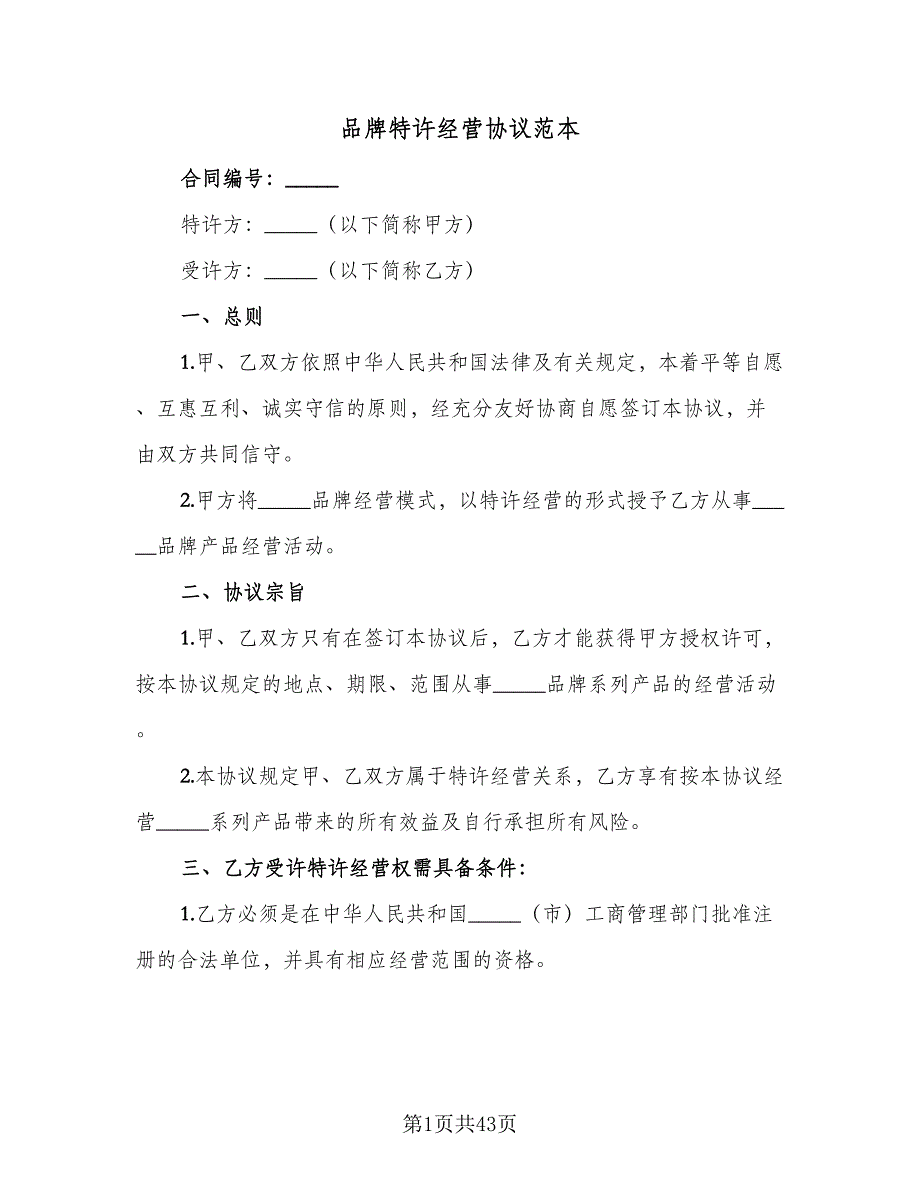 品牌特许经营协议范本
合同编号：_____
特许方：_____（以下简称甲方）
受许方：_____（以下简称乙方）
一、总则
1.甲、乙双方依照中华人民共和国法律及有关规定，本着平等自愿
、互惠互利、诚实守信的原则，经充分友好协商自愿签订本协议，并
由双方共同信守。
2.甲方将_____品牌经营模式，以特许经营的形式授予乙方从事___
__品牌产品经营活动。
二、协议宗旨
1.甲、乙双方只有在签订本协议后，乙方才能获得甲方授权许可，
按本协议规定的地点、期限、范围从事_____品牌系列产品的经营活动
。
2.本协议规定甲、乙双方属于特许经营关系，乙方享有按本协议经
营_____系列产品带来的所有效益及自行承担所有风险。
三、乙方受许特许经营权需具备条件：
1.乙方必须是在中华人民共和国_____（市）工商管理部门批准注
册的合法单位，并具有相应经营范围的资格。
第1页共43页